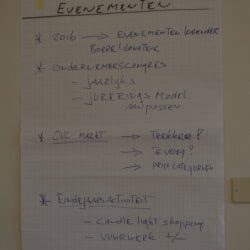 EVENEMENTEN
* 2016 → EVENEMENTEN KALENDER
* ONDERNEMERSCONGRES
- JAARLIJKS
- JURERINGS MODEL
AANPASSEN
* OVC MARKT → TERUGKEER?
→ TE VROEG?
→ PRIJS CATEGORIEËN
* EINDEJAARSACTIVITEIT
- CANDLE LIGHT SHOPPING
- VUURWERK +/-